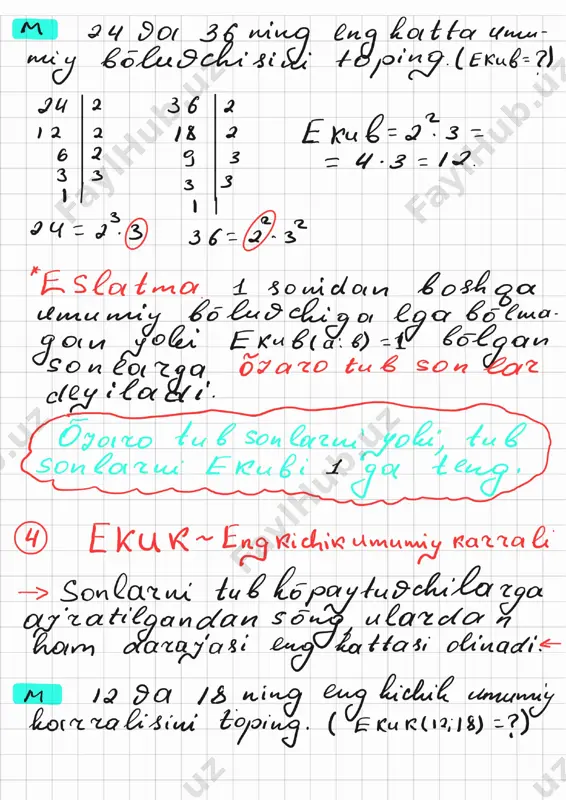 M 24 да 36 ning eng katta umu-
miy bõluvchisini toping. (EKUB=?)
24 | 2 36 | 2
12 | 2 18 | 2 EKUB = 2² · 3 =
6 | 2 9 | 3 = 4 · 3 = 12.
3 | 3 3 | 3
1 | 1 |
24 = 2³ · 3 36 = 2² · 3²
*ESlatma 1 sonidan boshqa
umumiy bõluvchiga ega bõlma-
gan yoki EKUB(a:b)=1 bõlgan
sonlarga õzaro tub sonlar
deyiladi.
Õzaro tub sonlarni yoki, tub
sonlarni EKUBi 1 ga teng.
4 EKUK ~ Eng kichik umumiy karrali
→ Sonlarni tub kõpaytuvchilarga
ajratilgandan sõng, ulardan
ham darajasi eng kattasi olinadi. ←
M 12 да 18 ning eng kichik umumiy
karralisini toping. (EKUK(12;18)=?)
FaylHub.uz
FaylHub.uz
FaylHub.uz
FaylHub.uz